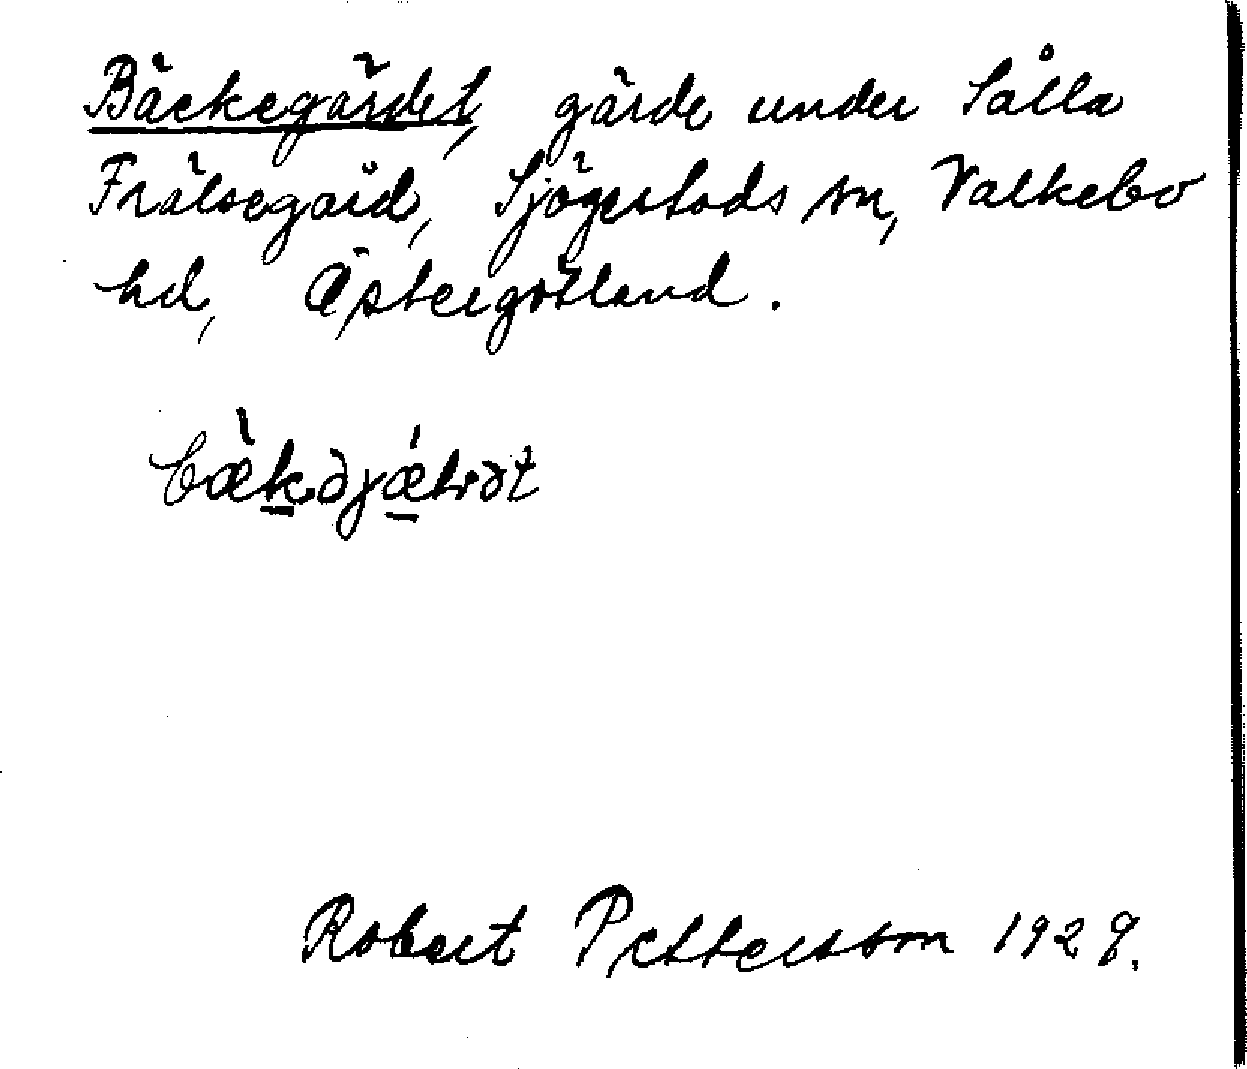 Bäckegärdet, gärde under Sålla
Frälsegård, Sjögestads sn, Valkebo
hd, Östergötland.
bæ̀kəjǽḷət
Robert Pettersson 1929.